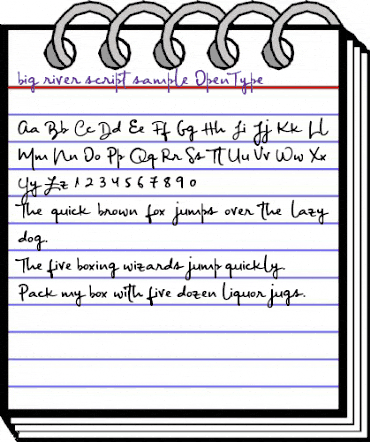 big river script sample OpenType
Aa Bb Cc Dd Ee Ff Gg Hh Ii Jj Kk Ll
Mm Nn Oo Pp Qq Rr Ss Tt Uu Vv Ww Xx
Yy Zz 1 2 3 4 5 6 7 8 9 0
The quick brown fox jumps over the lazy
dog.
The five boxing wizards jump quickly.
Pack my box with five dozen liquor jugs.